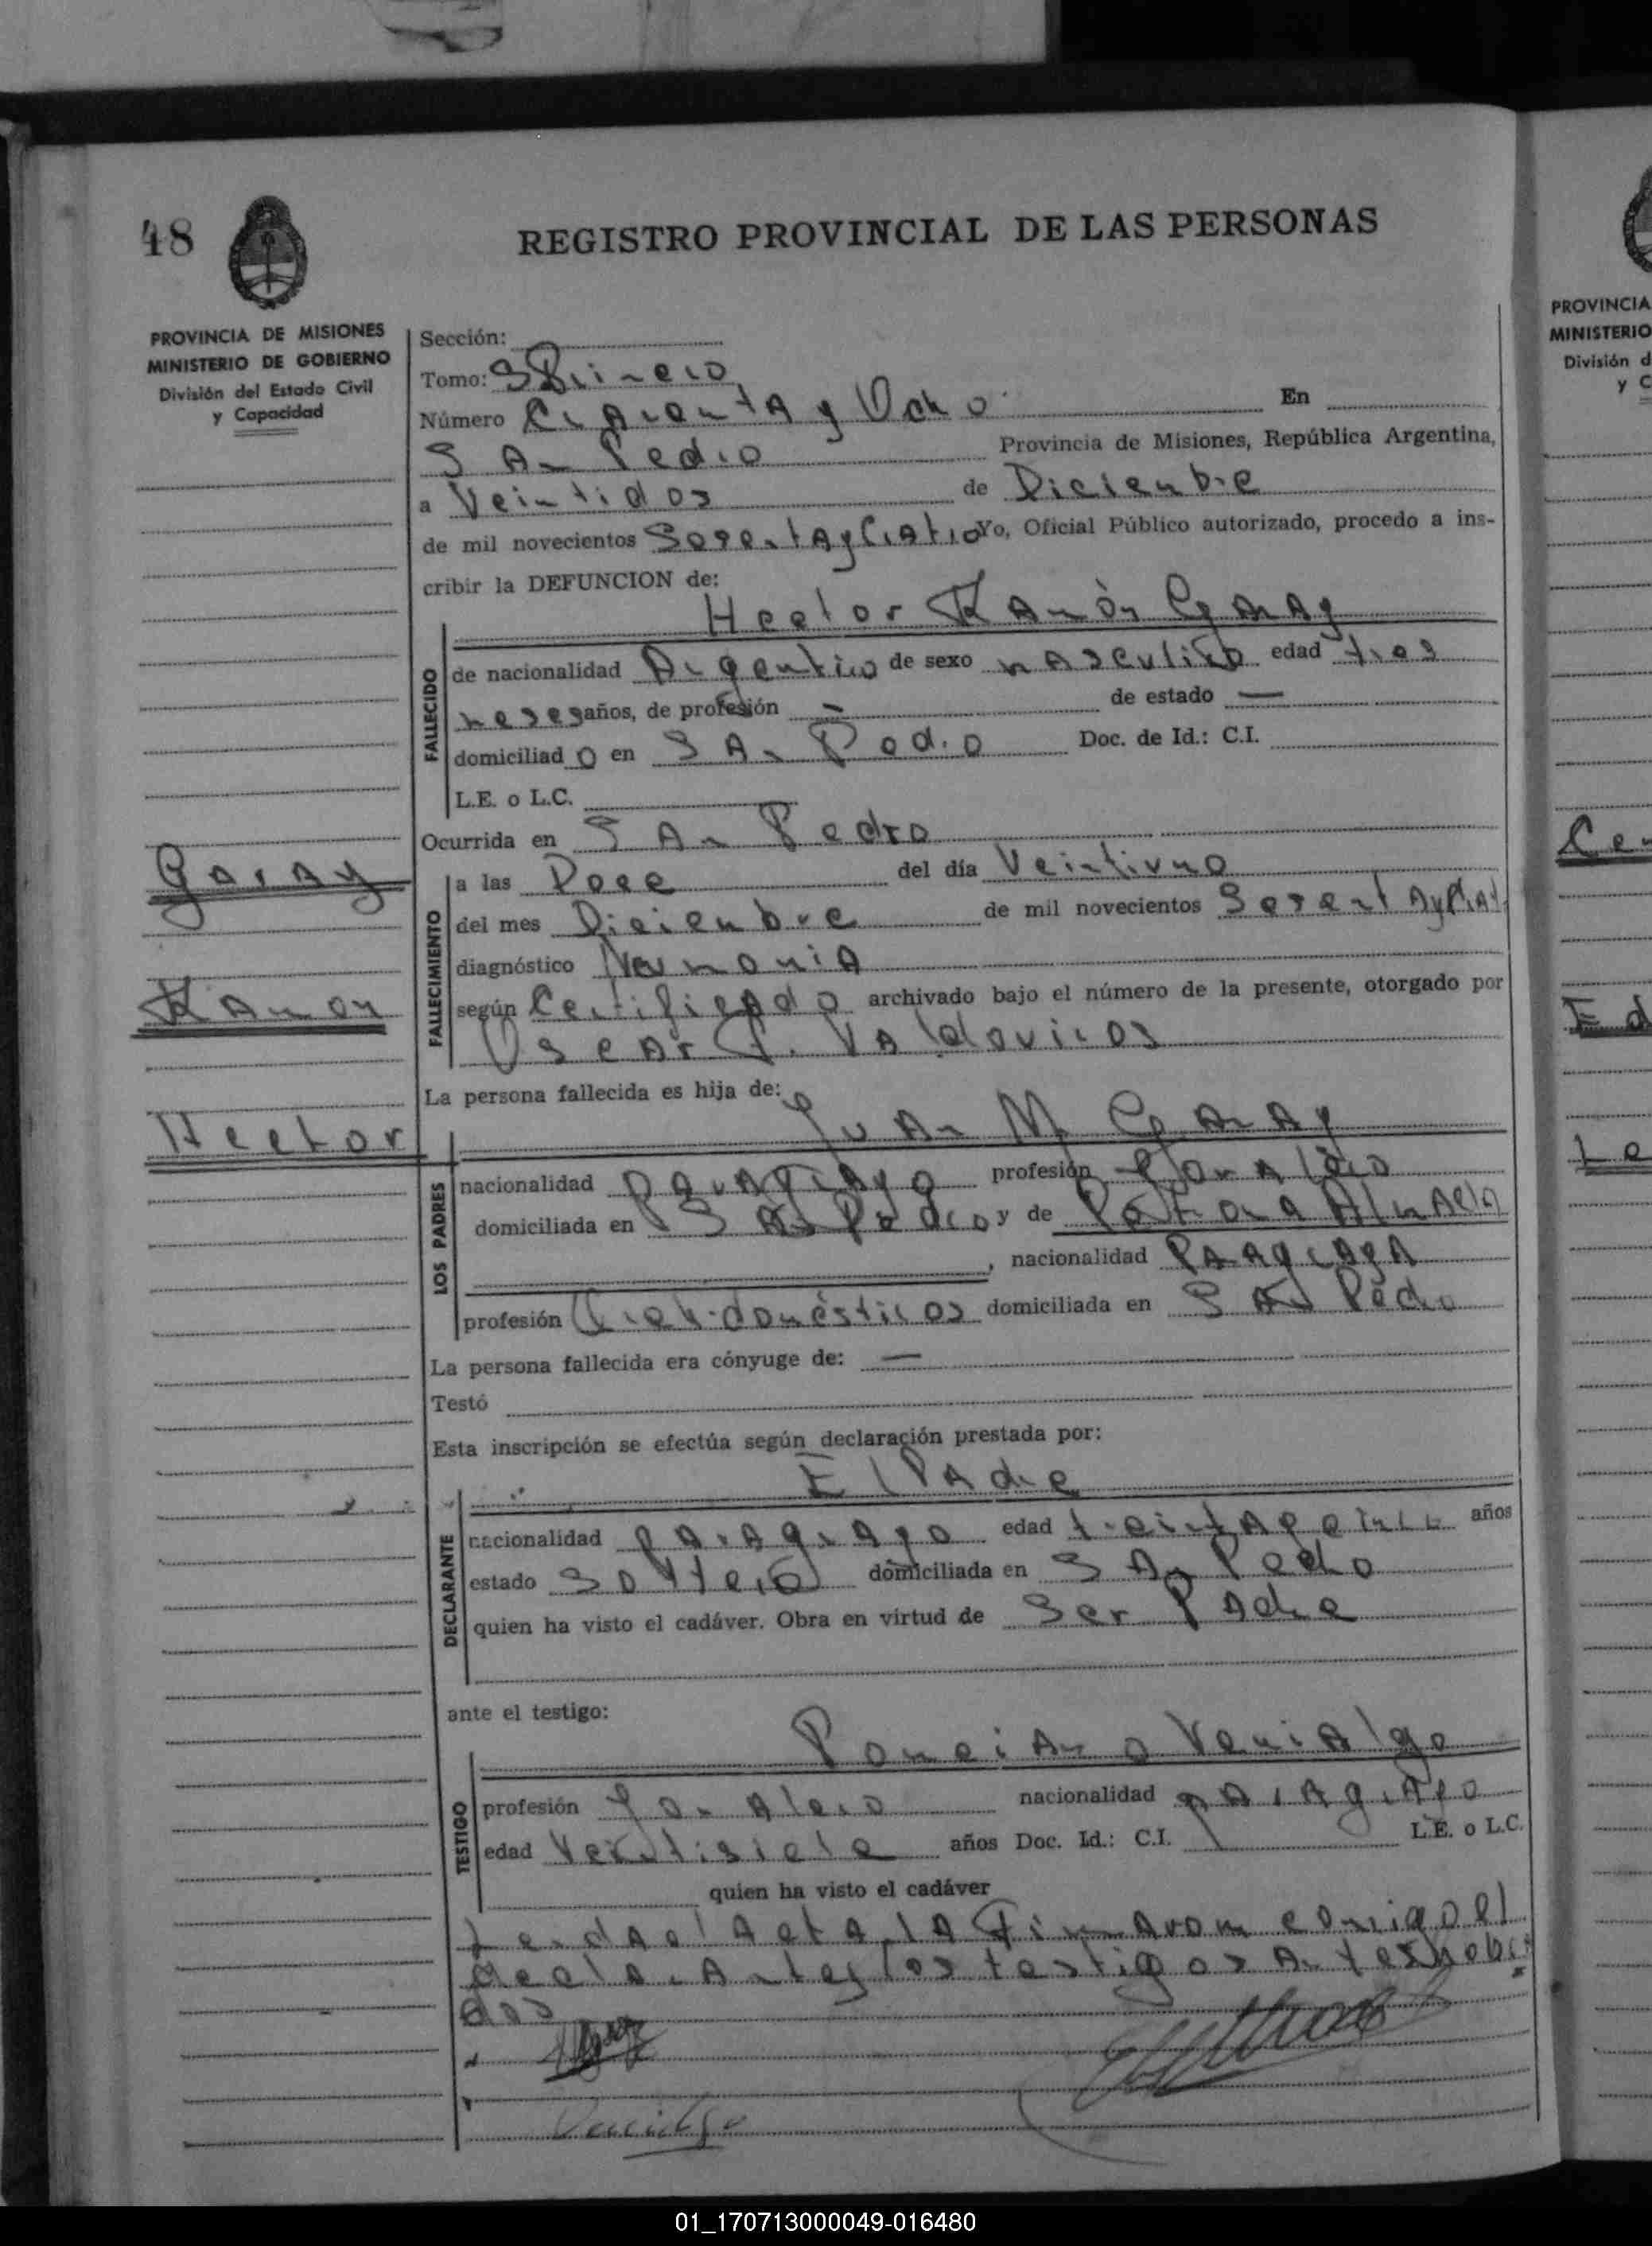 48
REGISTRO PROVINCIAL DE LAS PERSONAS
PROVINCIA DE MISIONES
MINISTERIO DE GOBIERNO
División del Estado Civil
y Capacidad
Sección:
Tomo: Primero
Número Cuarenta y Ocho En
San Pedro Provincia de Misiones, República Argentina,
a Veintidos de Diciembre
de mil novecientos Sesenta y Cuatro Yo, Oficial Público autorizado, procedo a ins-
cribir la DEFUNCION de:
Hector Ramón Garay
FALLECIDO
de nacionalidad Argentino de sexo masculino edad tres
meses años, de profesión — de estado —
domiciliad o en San Pedro Doc. de Id.: C.I.
L.E. o L.C.
Ocurrida en San Pedro
Garay
Ramon
Hector
FALLECIMIENTO
a las Doce del día Veintiuno
del mes Diciembre de mil novecientos Sesenta y Cuat
diagnóstico Neumonia
según Certificado archivado bajo el número de la presente, otorgado por
Oscar F. Valdovinos
La persona fallecida es hija de:
Juan M Garay
LOS PADRES
nacionalidad paraguayo profesión Jornalero
domiciliada en San Pedro y de Petrona
, nacionalidad
profesión Queh. domésticos domiciliada en San Pedro
La persona fallecida era cónyuge de: —
Testó
Esta inscripción se efectúa según declaración prestada por:
El Padre
DECLARANTE
nacionalidad paraguayo edad años
estado Soltero domiciliada en San Pedro
quien ha visto el cadáver. Obra en virtud de Ser Padre
ante el testigo:
Ponciano Venialgo
TESTIGO
profesión Jornalero nacionalidad paraguayo
edad Veintisiete años Doc. Id.: C.I. L.E. o L.C.
quien ha visto el cadáver
Leida el Acta la Firmaron conmigo el
Declarante y los testigos
dos
Venialgo
PROVINCIA
MINISTERIO
División d
y C
01_170713000049-016480